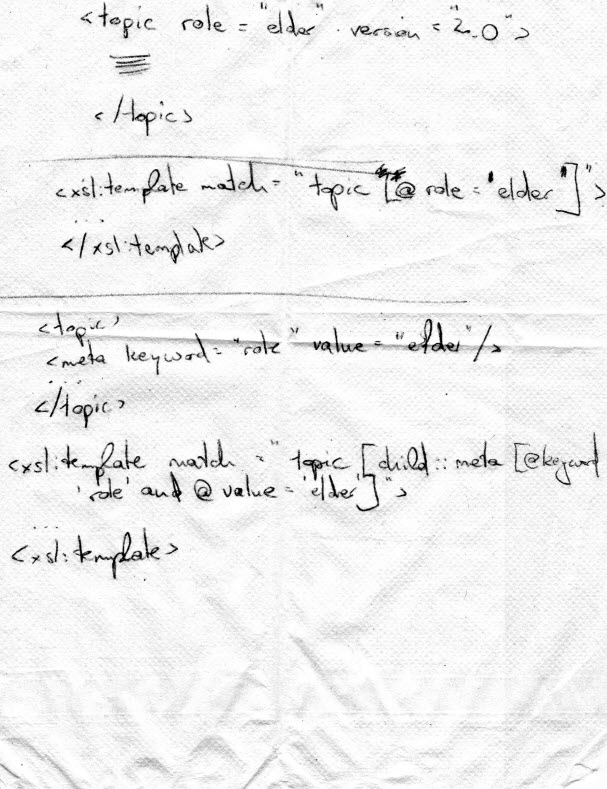 <topic role = "elder" version = "2.0">
</topic>
<xsl:template match = "topic [@ role = 'elder']">
...
</xsl:template>
<topic>
<meta keyword = "role" value = "elder"/>
...
</topic>
<xsl:template match = "topic [child::meta [@keyword
'role' and @ value = 'elder']">
...
<xsl:template>